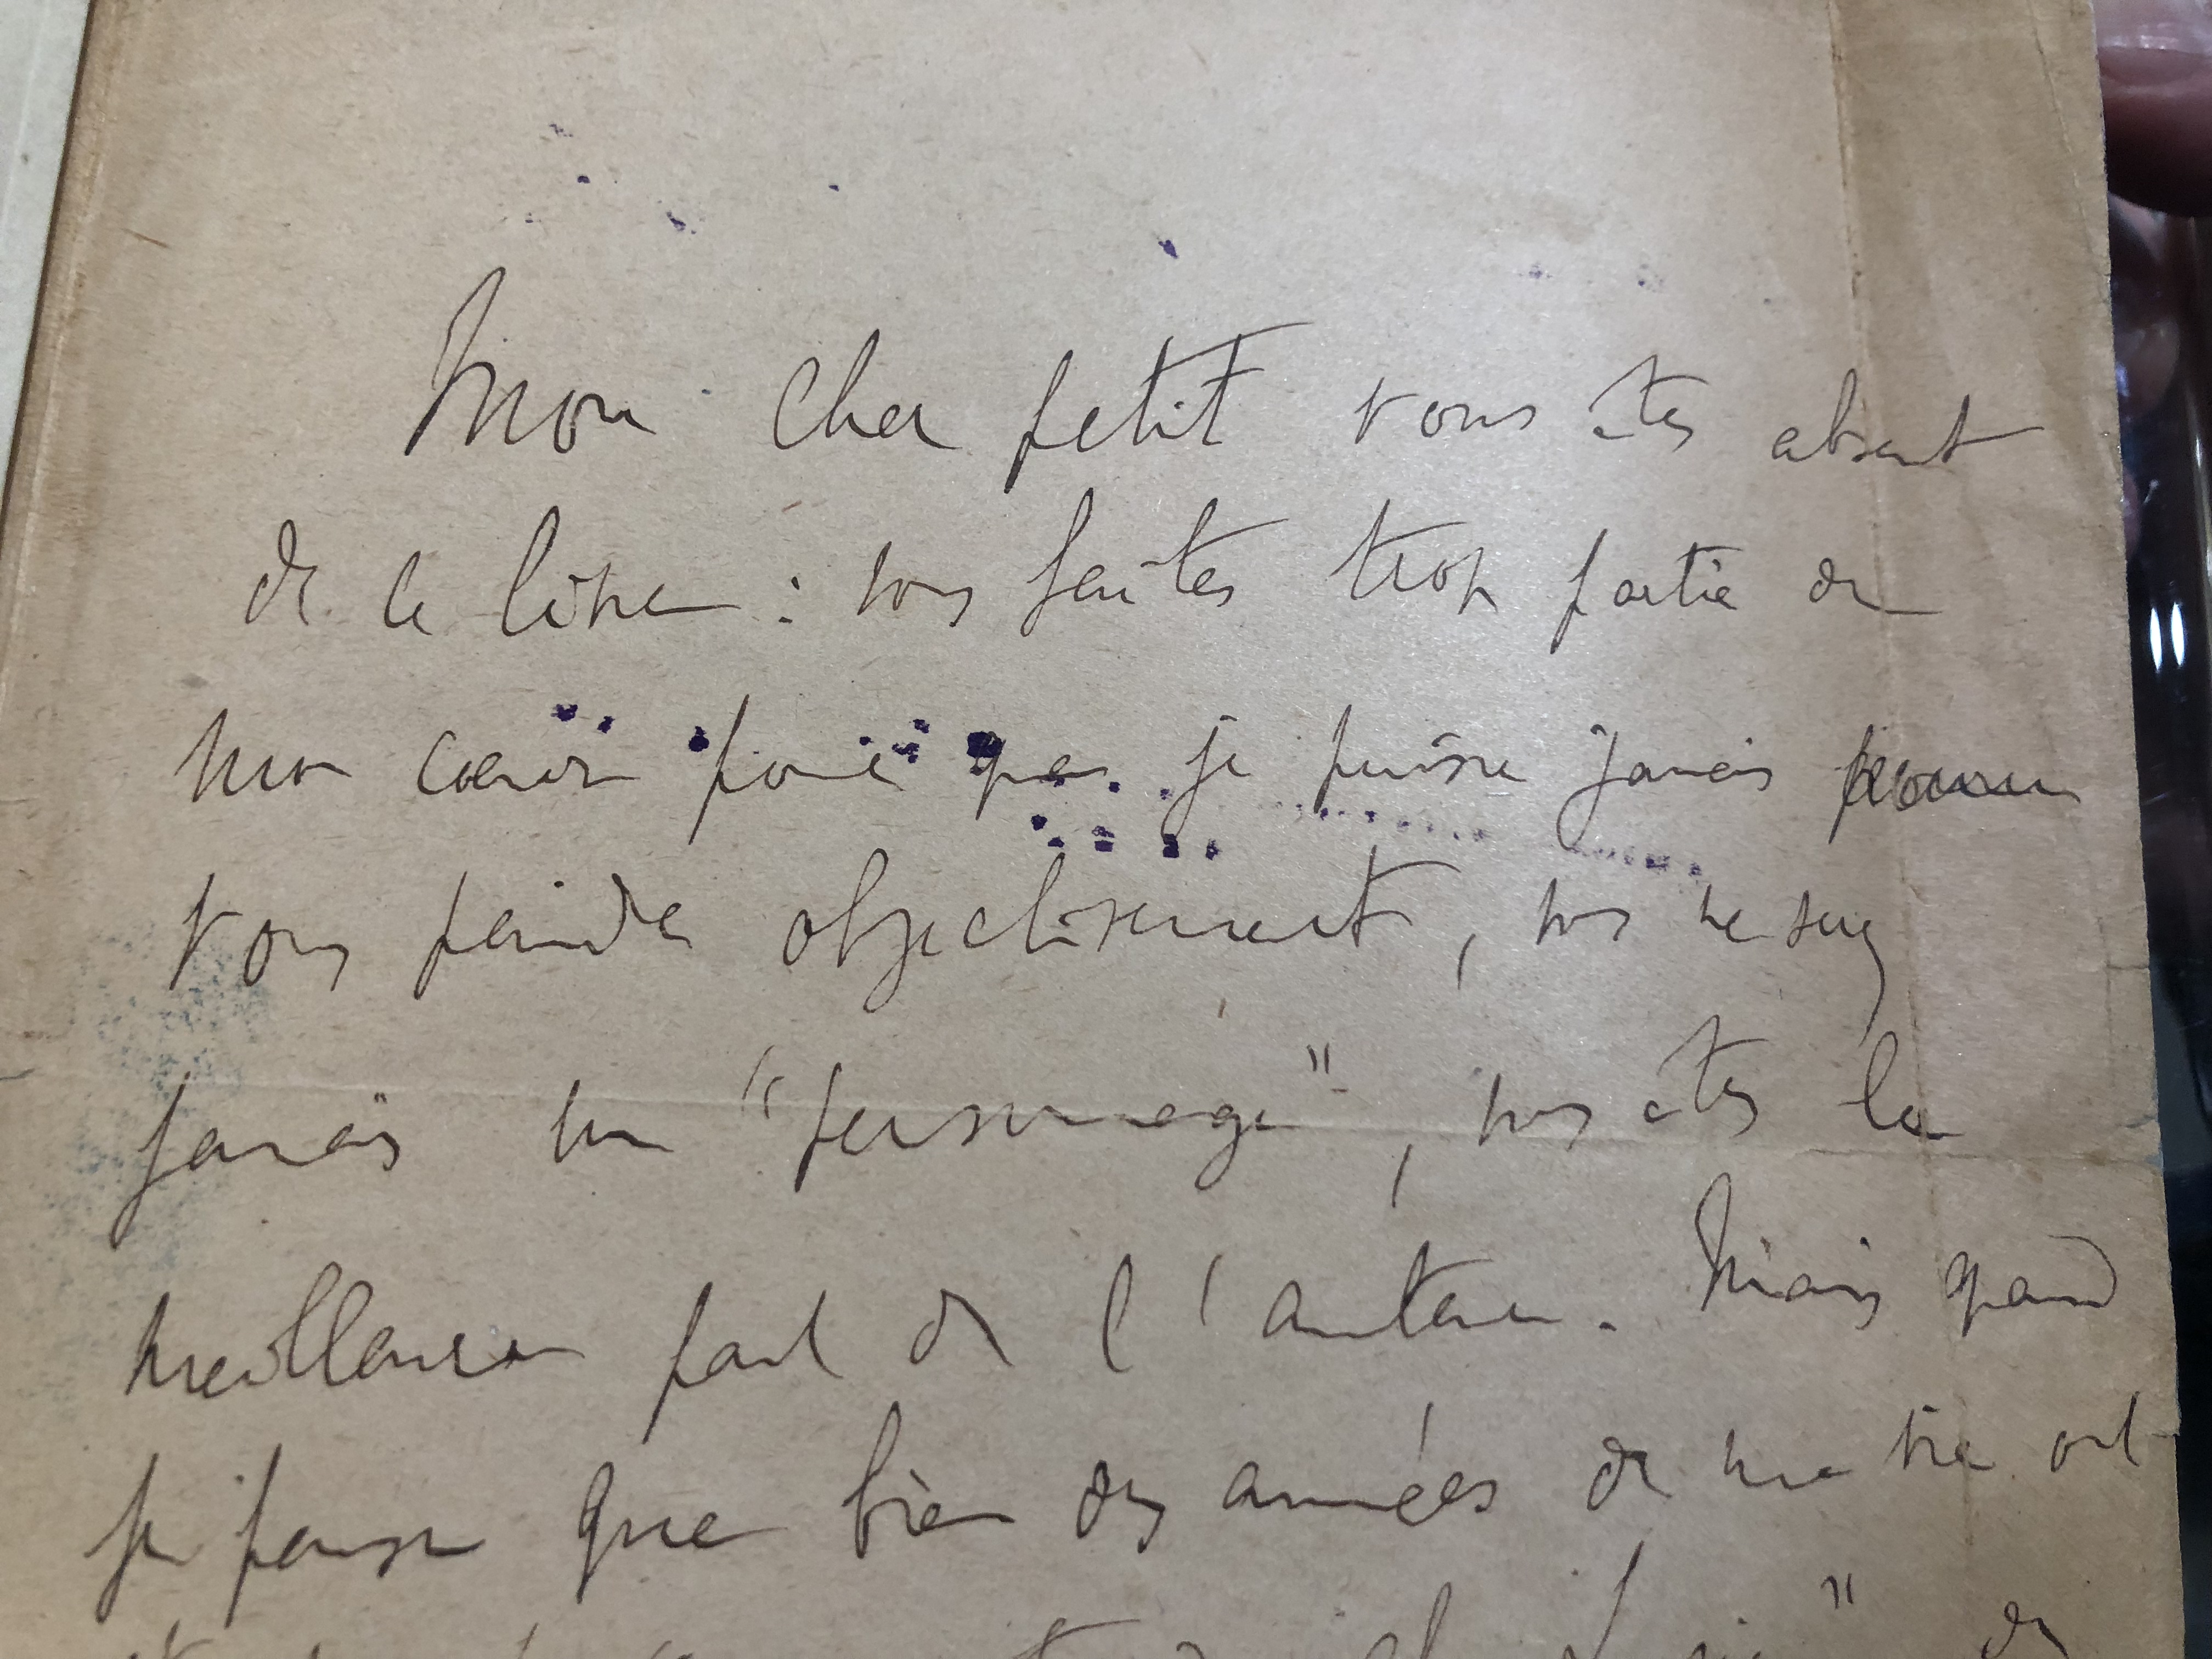 Mon cher petit vous êtes absent
de ce livre : vous faites trop partie de
mon cœur pour que je puisse jamais
vous peindre objectivement, vous ne serez
jamais un "personnage", vous êtes la
meilleure part de l'auteur. Mais quand
je pense que bien des années de ma vie ont